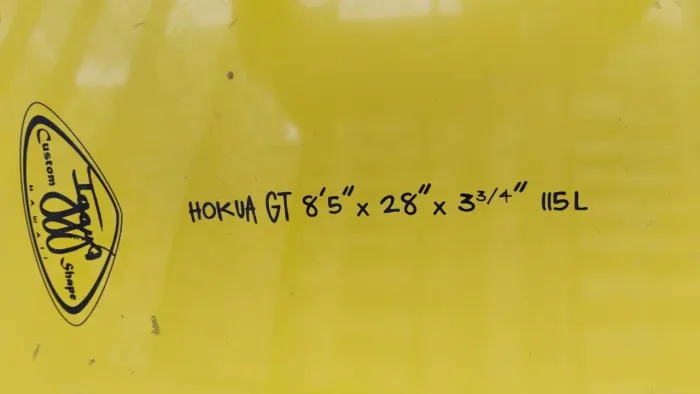 HOKUA GT 8'5" x 28" x 3 3/4" 115L
Custom
HAWAII
Shape